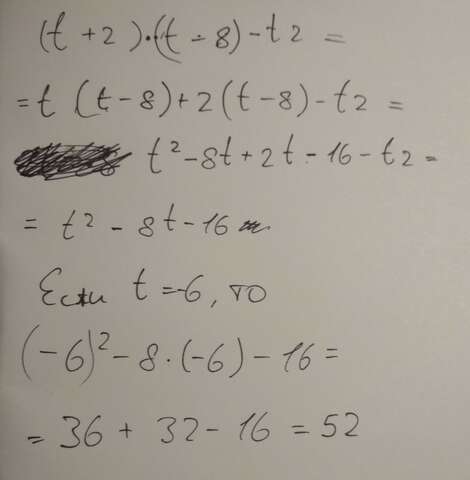 (t + 2)·(t - 8) - t2 =
= t (t - 8) + 2 (t - 8) - t2 =
t² - 8t + 2t - 16 - t2 =
= t² - 8t - 16
Если t = -6, то
(-6)² - 8 · (-6) - 16 =
= 36 + 32 - 16 = 52